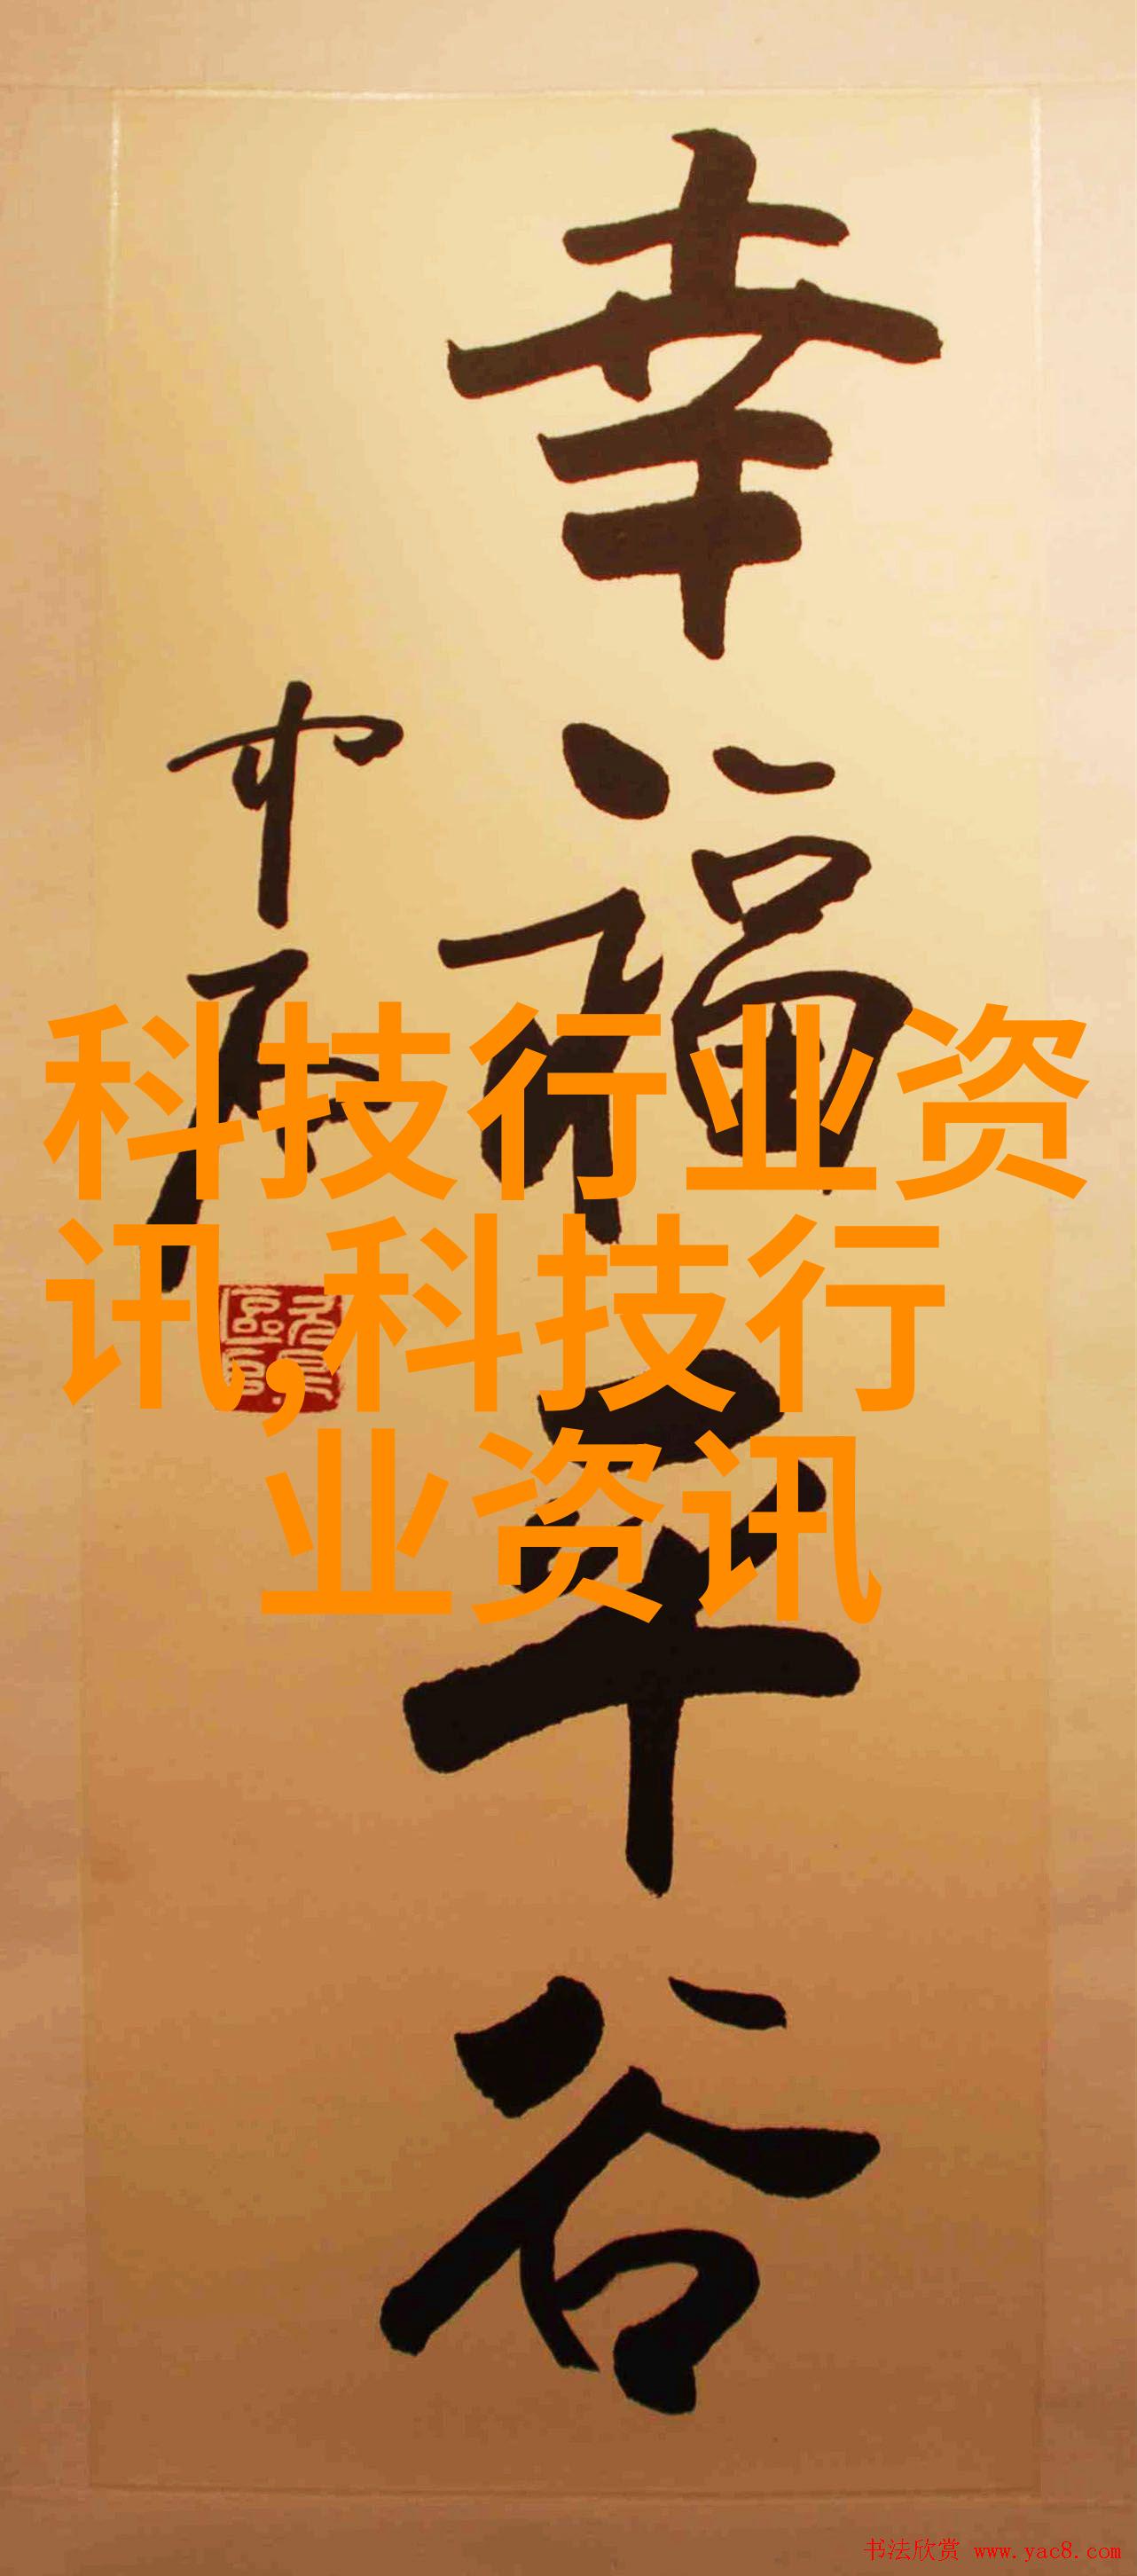 幸福平谷
中石
科技行业资
讯,科技行
业资讯
书法欣赏 www.yac8.com